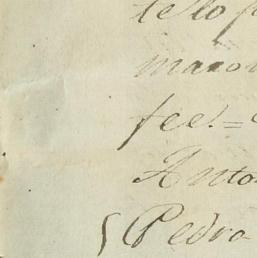 te lo f
maron
fee. =
Anto
Pedro